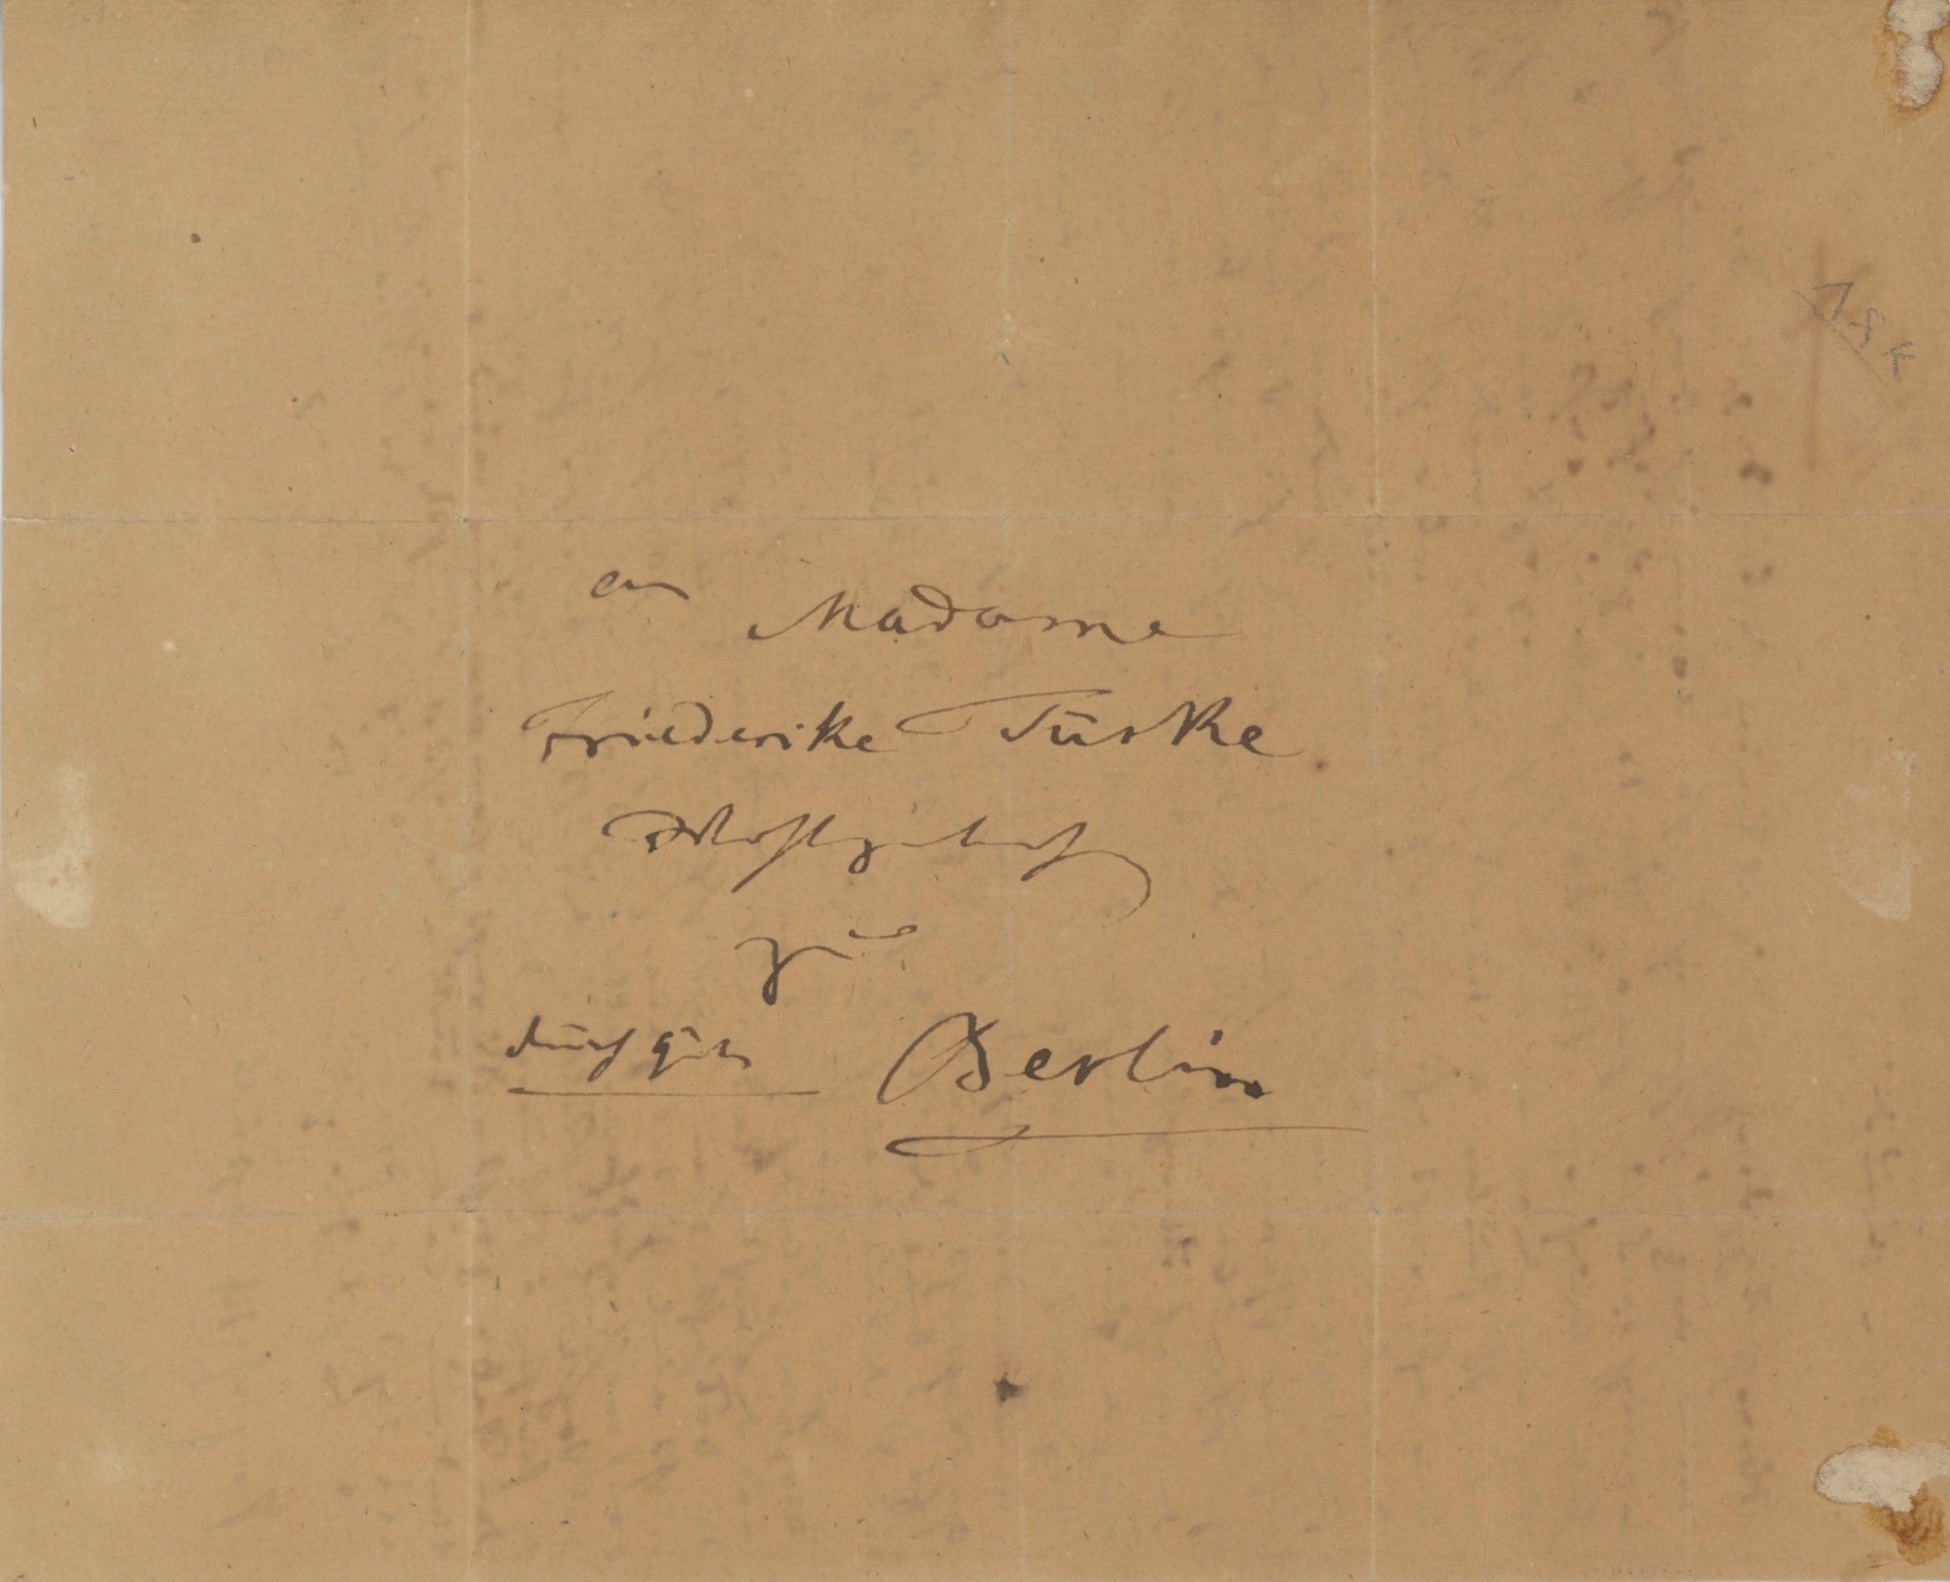 an Madame
Friederike Türke
Wohlgebohr
zu
durch güte Berlin